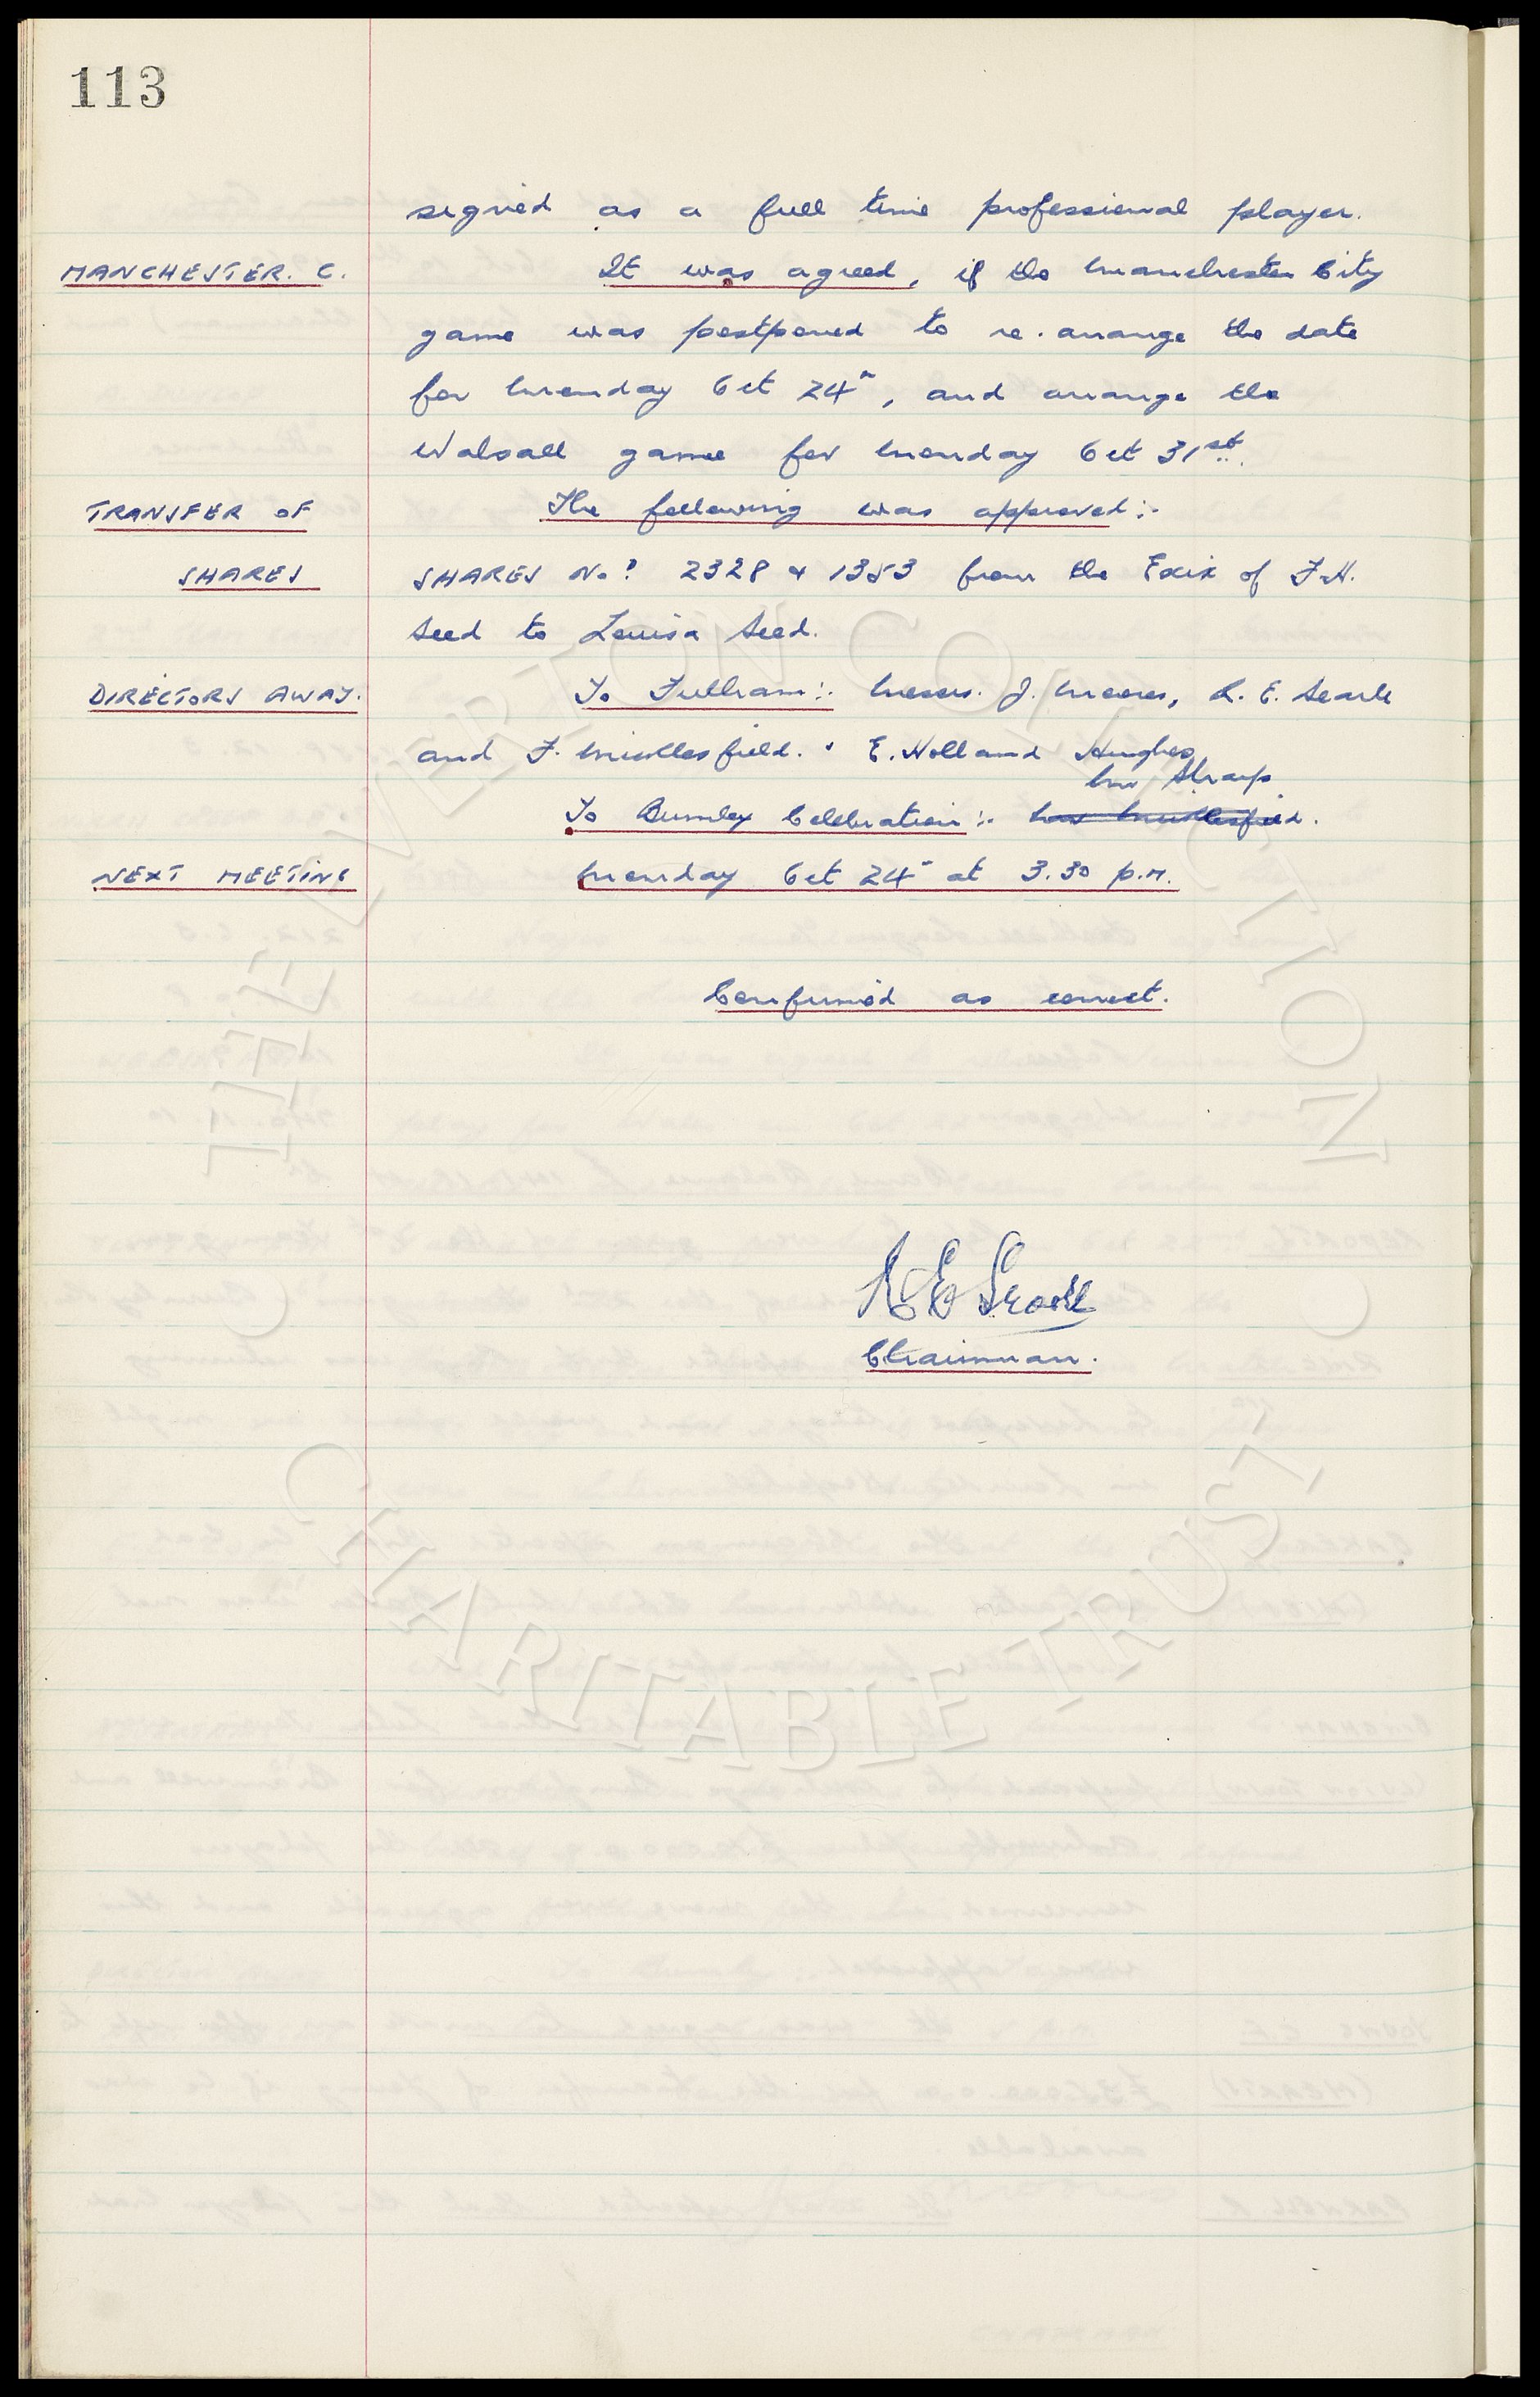 113
signed as a full time professional player.
MANCHESTER. C. It was agreed, if the Manchester City
game was postponed to re-arrange the date
for Monday Oct 24", and arrange the
Walsall game for Monday Oct 31st.
TRANSFER OF The following was approved :-
SHARES SHARES No? 2328 & 1353 from the Exix of F.H.
Seed to Louisa Seed.
DIRECTORS AWAY. To Fulham :- Messrs. J. Moores, R. E. Searle
and F. Micklesfield. & E. Holland Hughes
Mr Sharp
To Burnley Celebration :- Mr Micklesfield.
NEXT MEETING Monday Oct 24" at 3.30 p.m.
Confirmed as correct.
R E Searle
Chairman.
THE EVERTON COLLECTION
CHARITABLE TRUST